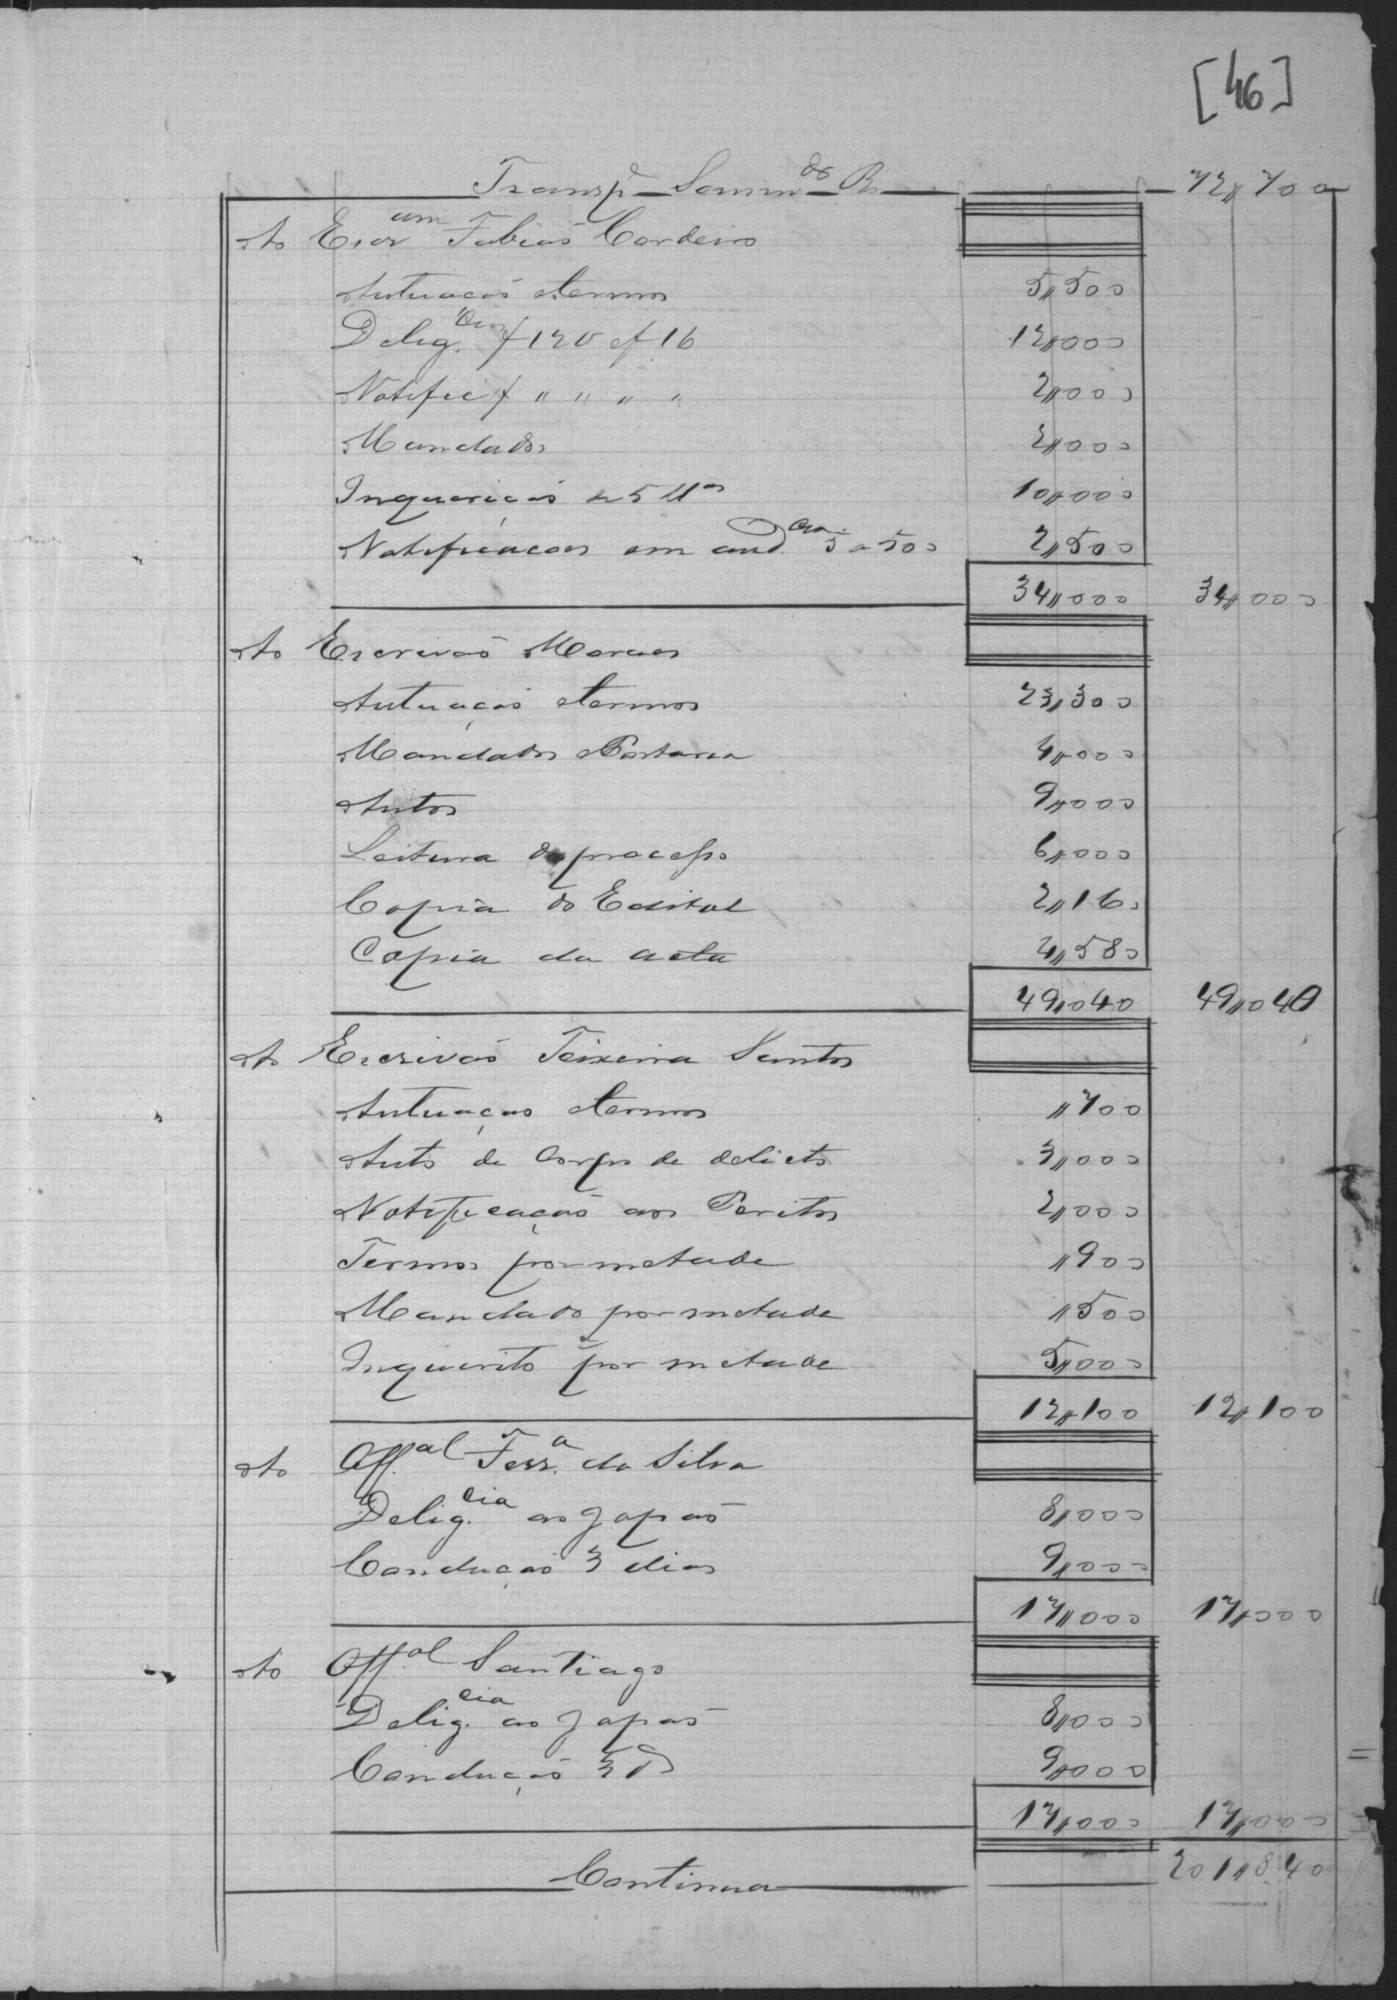 [46]
Transp.e Somm do Rs 72,,700
Ao Escr.am Tobias Cordeiro
Autuação e termos 5,,500
Delig.cias f 12 v e f 16 12,,000
Notific f " " " " 2,,000
Mandados 2,,000
Inquerição de 5 tt.as 10,,000
Notificacoes em aud.cia 5 a 500 2,,500
34,,000 34,,000
Ao Escrivão Marcos
Autuação e termos 23,,300
Mandados e Portaria 4,,000
Autos 9,,000
Leitura do processo 6,,000
Copia do Edital 2,,160
Copia da acta 4,,580
49,,040 49,,040
Ao Escrivão Teixeira Santos
Autuaçao e termos ,,700
Auto de Corpo de delicto 3,,000
Notificação aos Peritos 2,,000
Termos por metade ,,900
Mandado por metade ,,500
Inquerito por metade 5,,000
12,,100 12,,100
Ao Off.al Ferr.a da Silva
Delig.cia ao Japão 8,,000
Condução 3 dias 9,,000
17,,000 17,,000
Ao Off.al Santiago
Delig.cia ao Japão 8,,000
Condução 3 d 9,,000
17,,000 17,,000
Continua 201,,840